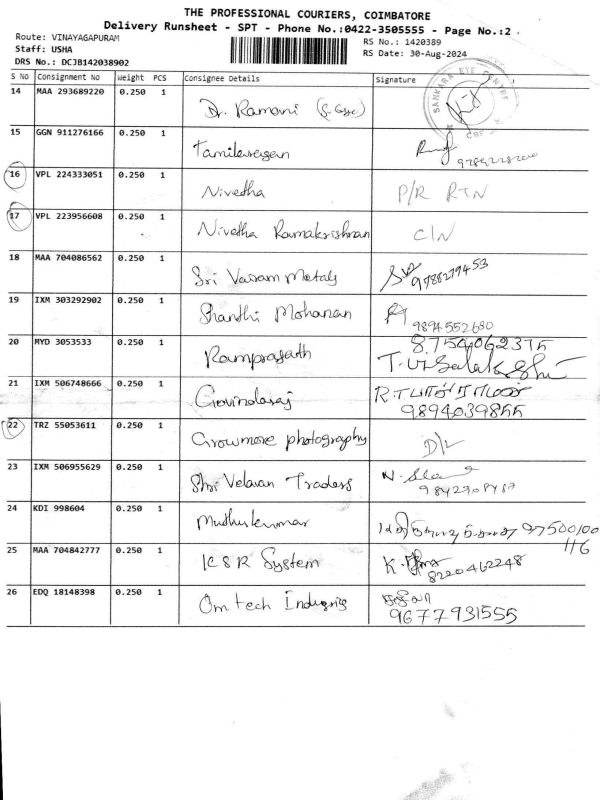 THE PROFESSIONAL COURIERS, COIMBATORE
Delivery Runsheet - SPT - Phone No.:0422-3505555 - Page No.:2
Route: VINAYAGAPURAM
RS No.: 1420389
Staff: USHA
RS Date: 30-Aug-2024
DRS No.: DCJB142038902
S No Consignment No Weight PCS Consignee Details Signature
14 MAA 293689220 0.250 1 Dr. Ramani
SANKARA EYE CENTRE
15 GGN 911276166 0.250 1 Tamilarasan
16 VPL 224333051 0.250 1 Nivetha P/R RTN
17 VPL 223956608 0.250 1 Nivetha Ramakrishnan C/N
18 MAA 704086562 0.250 1 Sri Vairam Metals
9788279453
19 IXM 303292902 0.250 1 Shanthi Mohanan
9894552680
20 MYD 3053533 0.250 1 Ramprasath
21 IXM 506748666 0.250 1 Govindaraj
22 TRZ 55053611 0.250 1 Growmore photography D/L
23 IXM 506955629 0.250 1 Shri Velavan Traders
24 KDI 998604 0.250 1 Muthukumar 97500100
116
25 MAA 704842777 0.250 1 KSR System
8220462248
26 EDQ 18148398 0.250 1 Om tech
9677931555